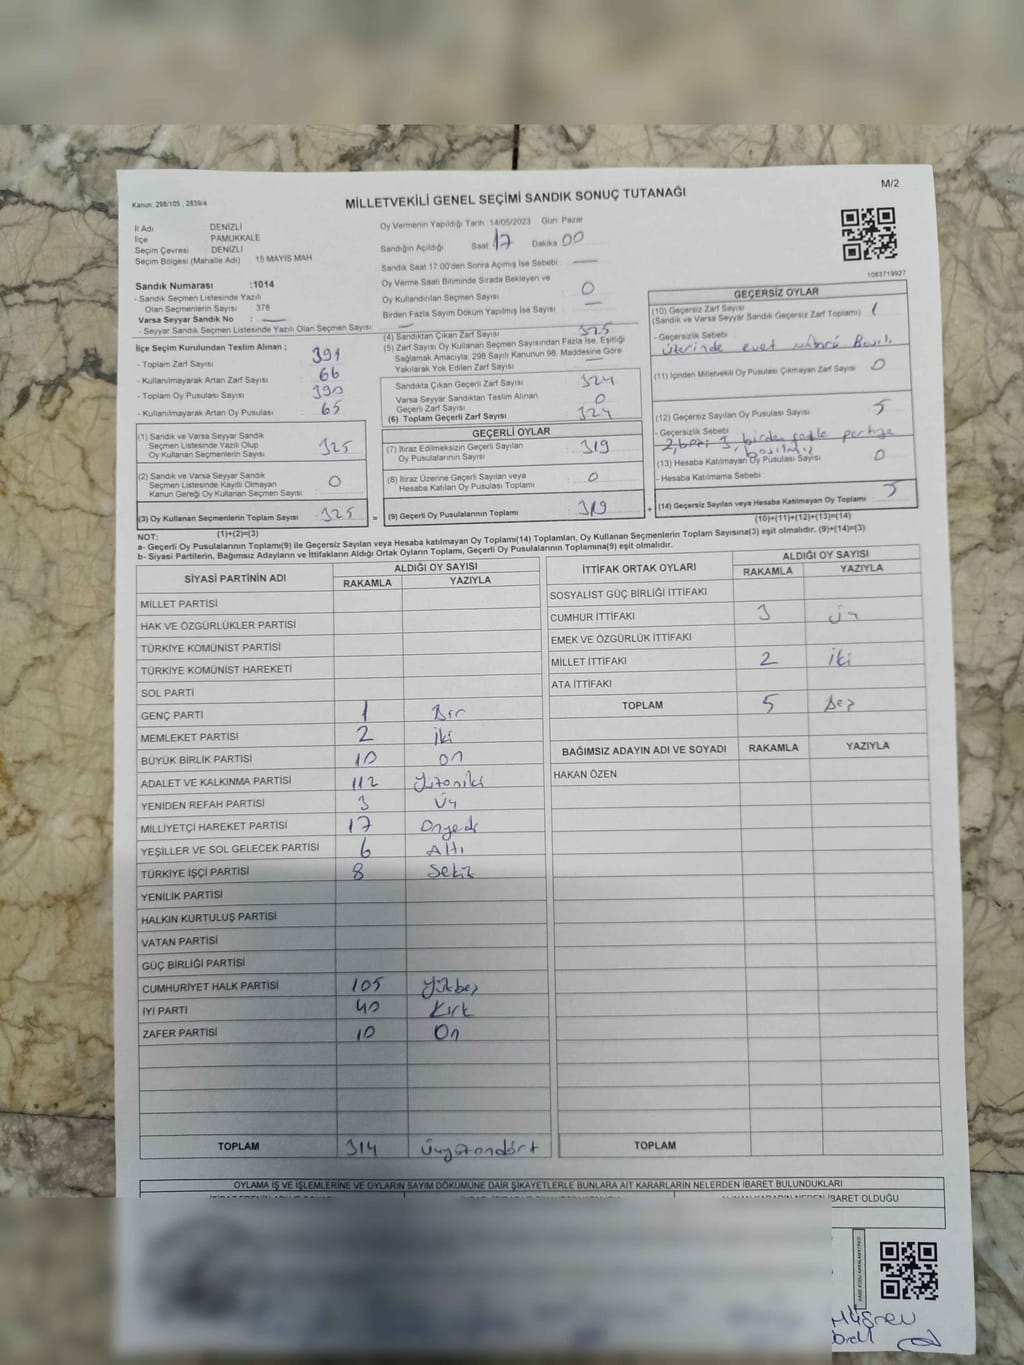 M/2
Kanun: 298/105 , 2839/4
MİLLETVEKİLİ GENEL SEÇİMİ SANDIK SONUÇ TUTANAĞI
İl Adı : DENİZLİ
İlçe PAMUKKALE
Seçim Çevresi : DENİZLİ
Seçim Bölgesi (Mahalle Adı) 15 MAYIS MAH
Oy Vermenin Yapıldığı Tarih 14/05/2023 Gün: Pazar
Sandığın Açıldığı Saat 17 Dakika 00
Sandık Saat 17:00'den Sonra Açımış İse Sebebi :
Oy Verme Saati Bitiminde Sırada Bekleyen ve
Oy Kullandırılan Seçmen Sayısı 0
Birden Fazla Sayım Döküm Yapılmış İse Sayısı :
1083719927
Sandık Numarası :1014
- Sandık Seçmen Listesinde Yazılı
Olan Seçmenlerin Sayısı 378
Varsa Seyyar Sandık No :
- Seyyar Sandık Seçmen Listesinde Yazılı Olan Seçmen Sayısı :
İlçe Seçim Kurulundan Teslim Alınan ;
- Toplam Zarf Sayısı 391
- Kullanılmayarak Artan Zarf Sayısı 66
- Toplam Oy Pusulası Sayısı 390
- Kullanılmayarak Artan Oy Pusulası 65
(1) Sandık ve Varsa Seyyar Sandık
Seçmen Listesinde Yazılı Olup
Oy Kullanan Seçmenlerin Sayısı 325
(2) Sandık ve Varsa Seyyar Sandık
Seçmen Listesinde Kayıtlı Olmayan
Kanun Gereği Oy Kullanan Seçmen Sayısı 0
(3) Oy Kullanan Seçmenlerin Toplam Sayısı 325 =
(1)+(2)=(3)
(4) Sandıktan Çıkan Zarf Sayısı 325
(5) Zarf Sayısı Oy Kullanan Seçmen Sayısından Fazla İse, Eşitliği
Sağlamak Amacıyla, 298 Sayılı Kanunun 98. Maddesine Göre
Yakılarak Yok Edilen Zarf Sayısı
Sandıkta Çıkan Geçerli Zarf Sayısı 324
Varsa Seyyar Sandıktan Teslim Alınan
Geçerli Zarf Sayısı 0
(6) Toplam Geçerli Zarf Sayısı 324
GEÇERLİ OYLAR
(7) İtiraz Edilmeksizin Geçerli Sayılan
Oy Pusulalarının Sayısı 319
(8) İtiraz Üzerine Geçerli Sayılan veya
Hesaba Katılan Oy Pusulası Toplamı 0
(9) Geçerli Oy Pusulalarının Toplamı 319 +
GEÇERSİZ OYLAR
(10) Geçersiz Zarf Sayısı 1
(Sandık ve Varsa Seyyar Sandık Geçersiz Zarf Toplamı)
- Geçersizlik Sebebi
Üzerinde evet mührü Basılı
(11) İçinden Milletvekili Oy Pusulası Çıkmayan Zarf Sayısı 0
(12) Geçersiz Sayılan Oy Pusulası Sayısı 5
- Geçersizlik Sebebi
2 boş, 3 birden fazla partiye
(13) Hesaba Katılmayan Oy Pusulası Sayısı 0
- Hesaba Katılmama Sebebi :
(14) Geçersiz Sayılan veya Hesaba Katılmayan Oy Toplamı 5
(10)+(11)+(12)+(13)=(14)
NOT:
a- Geçerli Oy Pusulalarının Toplamı(9) ile Geçersiz Sayılan veya Hesaba katılmayan Oy Toplamı(14) Toplamları, Oy Kullanan Seçmenlerin Toplam Sayısına(3) eşit olmalıdır. (9)+(14)=(3)
b- Siyasi Partilerin, Bağımsız Adayların ve İttifakların Aldığı Ortak Oyların Toplamı, Geçerli Oy Pusulalarının Toplamına(9) eşit olmalıdır.
SİYASİ PARTİNİN ADI ALDIĞI OY SAYISI
RAKAMLA YAZIYLA
MİLLET PARTİSİ
HAK VE ÖZGÜRLÜKLER PARTİSİ
TÜRKİYE KOMÜNİST PARTİSİ
TÜRKİYE KOMÜNİST HAREKETİ
SOL PARTİ
GENÇ PARTİ 1 Bir
MEMLEKET PARTİSİ 2 İki
BÜYÜK BİRLİK PARTİSİ 10 on
ADALET VE KALKINMA PARTİSİ 112 Yüzoniki
YENİDEN REFAH PARTİSİ 3 Üç
MİLLİYETÇİ HAREKET PARTİSİ 17 Onyedi
YEŞİLLER VE SOL GELECEK PARTİSİ 6 Altı
TÜRKİYE İŞÇİ PARTİSİ 8 Sekiz
YENİLİK PARTİSİ
HALKIN KURTULUŞ PARTİSİ
VATAN PARTİSİ
GÜÇ BİRLİĞİ PARTİSİ
CUMHURİYET HALK PARTİSİ 105 Yüzbeş
İYİ PARTİ 40 Kırk
ZAFER PARTİSİ 10 On
TOPLAM 314 Üçyüzondört
İTTİFAK ORTAK OYLARI ALDIĞI OY SAYISI
RAKAMLA YAZIYLA
SOSYALİST GÜÇ BİRLİĞİ İTTİFAKI
CUMHUR İTTİFAKI 3 Üç
EMEK VE ÖZGÜRLÜK İTTİFAKI
MİLLET İTTİFAKI 2 İki
ATA İTTİFAKI
TOPLAM 5 Beş
BAĞIMSIZ ADAYIN ADI VE SOYADI RAKAMLA YAZIYLA
HAKAN ÖZEN
TOPLAM
OYLAMA İŞ VE İŞLEMLERİNE VE OYLARIN SAYIM DÖKÜMÜNE DAİR ŞİKAYETLERLE BUNLARA AİT KARARLARIN NELERDEN İBARET BULUNDUKLARI
İBARET OLDUĞU